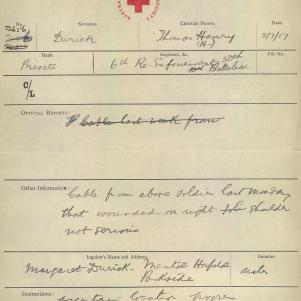 No. Surname. Christian Names.
3656 Durick Thomas Henry 2/7/17
(H-)
Rank. Regiment, &c. File No.
Private 6th Re-inforcements 50th Battalion
C/L
OFFICIAL REPORTS:
Cable last week from
Other Information: Cable from above soldier last Monday
that wounded on right shoulder
not serious
Inquirer's Name and Address. Relation.
Margaret Durick - Mental Hospital sister
Parkside
Instructions: location